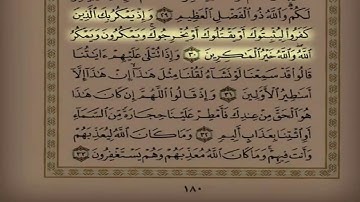 لَكُمْ وَاللَّهُ ذُو الْفَضْلِ الْعَظِيمِ ٢٩ وَإِذْ يَمْكُرُ بِكَ الَّذِينَ
كَفَرُوا لِيُثْبِتُوكَ أَوْ يَقْتُلُوكَ أَوْ يُخْرِجُوكَ وَيَمْكُرُونَ وَيَمْكُرُ
اللَّهُ وَاللَّهُ خَيْرُ الْمَاكِرِينَ ٣٠ وَإِذَا تُتْلَىٰ عَلَيْهِمْ آيَاتُنَا
قَالُوا قَدْ سَمِعْنَا لَوْ نَشَاءُ لَقُلْنَا مِثْلَ هَٰذَا إِنْ هَٰذَا إِلَّا
أَسَاطِيرُ الْأَوَّلِينَ ٣١ وَإِذْ قَالُوا اللَّهُمَّ إِنْ كَانَ هَٰذَا
هُوَ الْحَقَّ مِنْ عِنْدِكَ فَأَمْطِرْ عَلَيْنَا حِجَارَةً مِنَ السَّمَاءِ
أَوِ ائْتِنَا بِعَذَابٍ أَلِيمٍ ٣٢ وَمَا كَانَ اللَّهُ لِيُعَذِّبَهُمْ
وَأَنْتَ فِيهِمْ وَمَا كَانَ اللَّهُ مُعَذِّبَهُمْ وَهُمْ يَسْتَغْفِرُونَ ٣٣
١٨٠